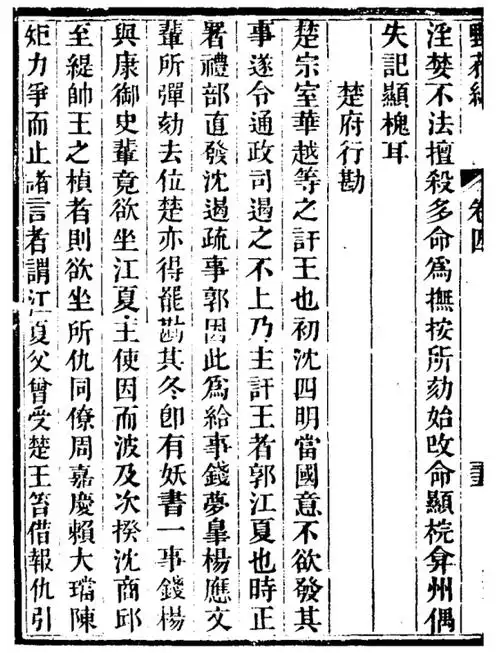 卷四
淫婪不法擅殺多命爲撫按所劾始改命顯梡弇州偶
失記顯槐耳
楚府行勘
楚宗室華越等之訐王也初沈四明當國意不欲發其
事遂令通政司遏之不上乃主訐王者郭江夏也時正
署禮部直發沈遏疏事郭因此爲給事錢夢臯楊應文
輩所彈劾去位楚亦得罷勘其冬卽有妖書一事錢楊
與康御史輩竟欲坐江夏主使因而波及次揆沈商邱
至緹帥王之楨者則欲坐所仇同僚周嘉慶賴大璫陳
矩力爭而止諸言者謂江夏父曾受楚王笞借報仇引